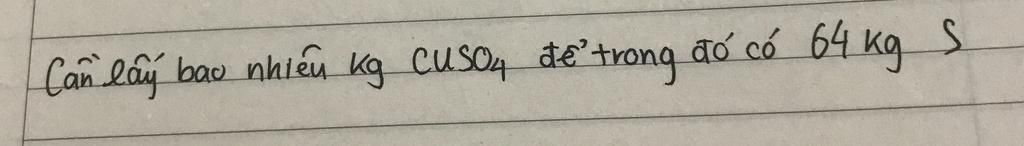 Cần lấy bao nhiêu kg CuSO4 để trong đó có 64 kg S